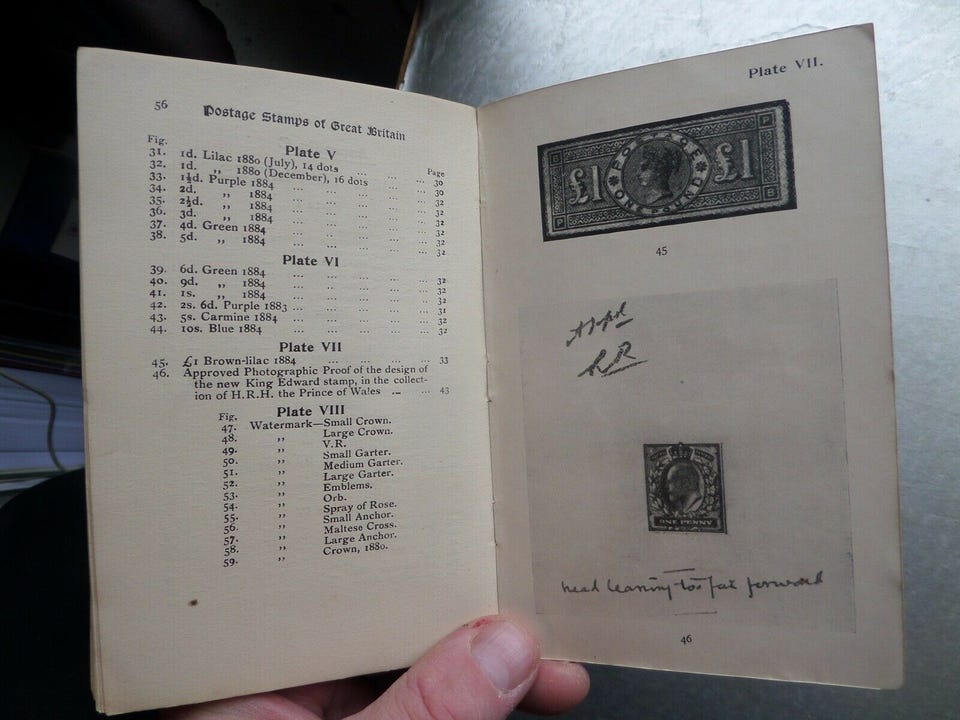 56 Postage Stamps of Great Britain
Fig. Plate V Page
31. 1d. Lilac 1880 (July), 14 dots ... 30
32. 1d. ,, 1880 (December), 16 dots ... 30
33. 1½d. Purple 1884 ... ... ... ... 32
34. 2d. ,, 1884 ... ... ... ... 32
35. 2½d. ,, 1884 ... ... ... ... 32
36. 3d. ,, 1884 ... ... ... ... 32
37. 4d. Green 1884 ... ... ... ... 32
38. 5d. ,, 1884 ... ... ... ... 32
Plate VI
39. 6d. Green 1884 ... ... ... ... 32
40. 9d. ,, 1884 ... ... ... ... 32
41. 1s. ,, 1884 ... ... ... ... 32
42. 2s. 6d. Purple 1883 ... ... ... ... 31
43. 5s. Carmine 1884 ... ... ... ... 32
44. 10s. Blue 1884 ... ... ... ... 32
Plate VII
45. £1 Brown-lilac 1884 ... ... ... ... 33
46. Approved Photographic Proof of the design of
the new King Edward stamp, in the collect-
ion of H.R.H. the Prince of Wales ... ... 43
Fig. Plate VIII
47. Watermark—Small Crown.
48. ,, Large Crown.
49. ,, V.R.
50. ,, Small Garter.
51. ,, Medium Garter.
52. ,, Large Garter.
53. ,, Emblems.
54. ,, Orb.
55. ,, Spray of Rose.
56. ,, Small Anchor.
57. ,, Maltese Cross.
58. ,, Large Anchor.
59. ,, Crown, 1880.
Plate VII.
POSTAGE
£1 £1
ONE POUND
45
ONE PENNY
head leaning too far forward
46